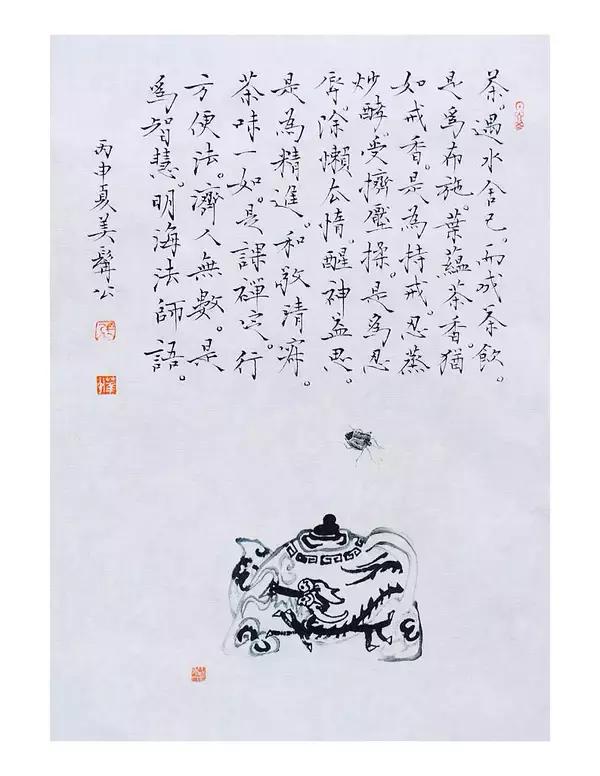 茶。遇水舍己。而成茶飲。
是爲布施。葉蘊茶香。猶
如戒香。是為持戒。忍蒸
炒酵。受擠壓揉。是爲忍
辱。除懶去惰。醒神益思。
是為精進。和敬清寂。
茶味一如。是謂禪定。行
方便法。濟人無數。是
爲智慧。明海法師語。
丙申夏美髯公